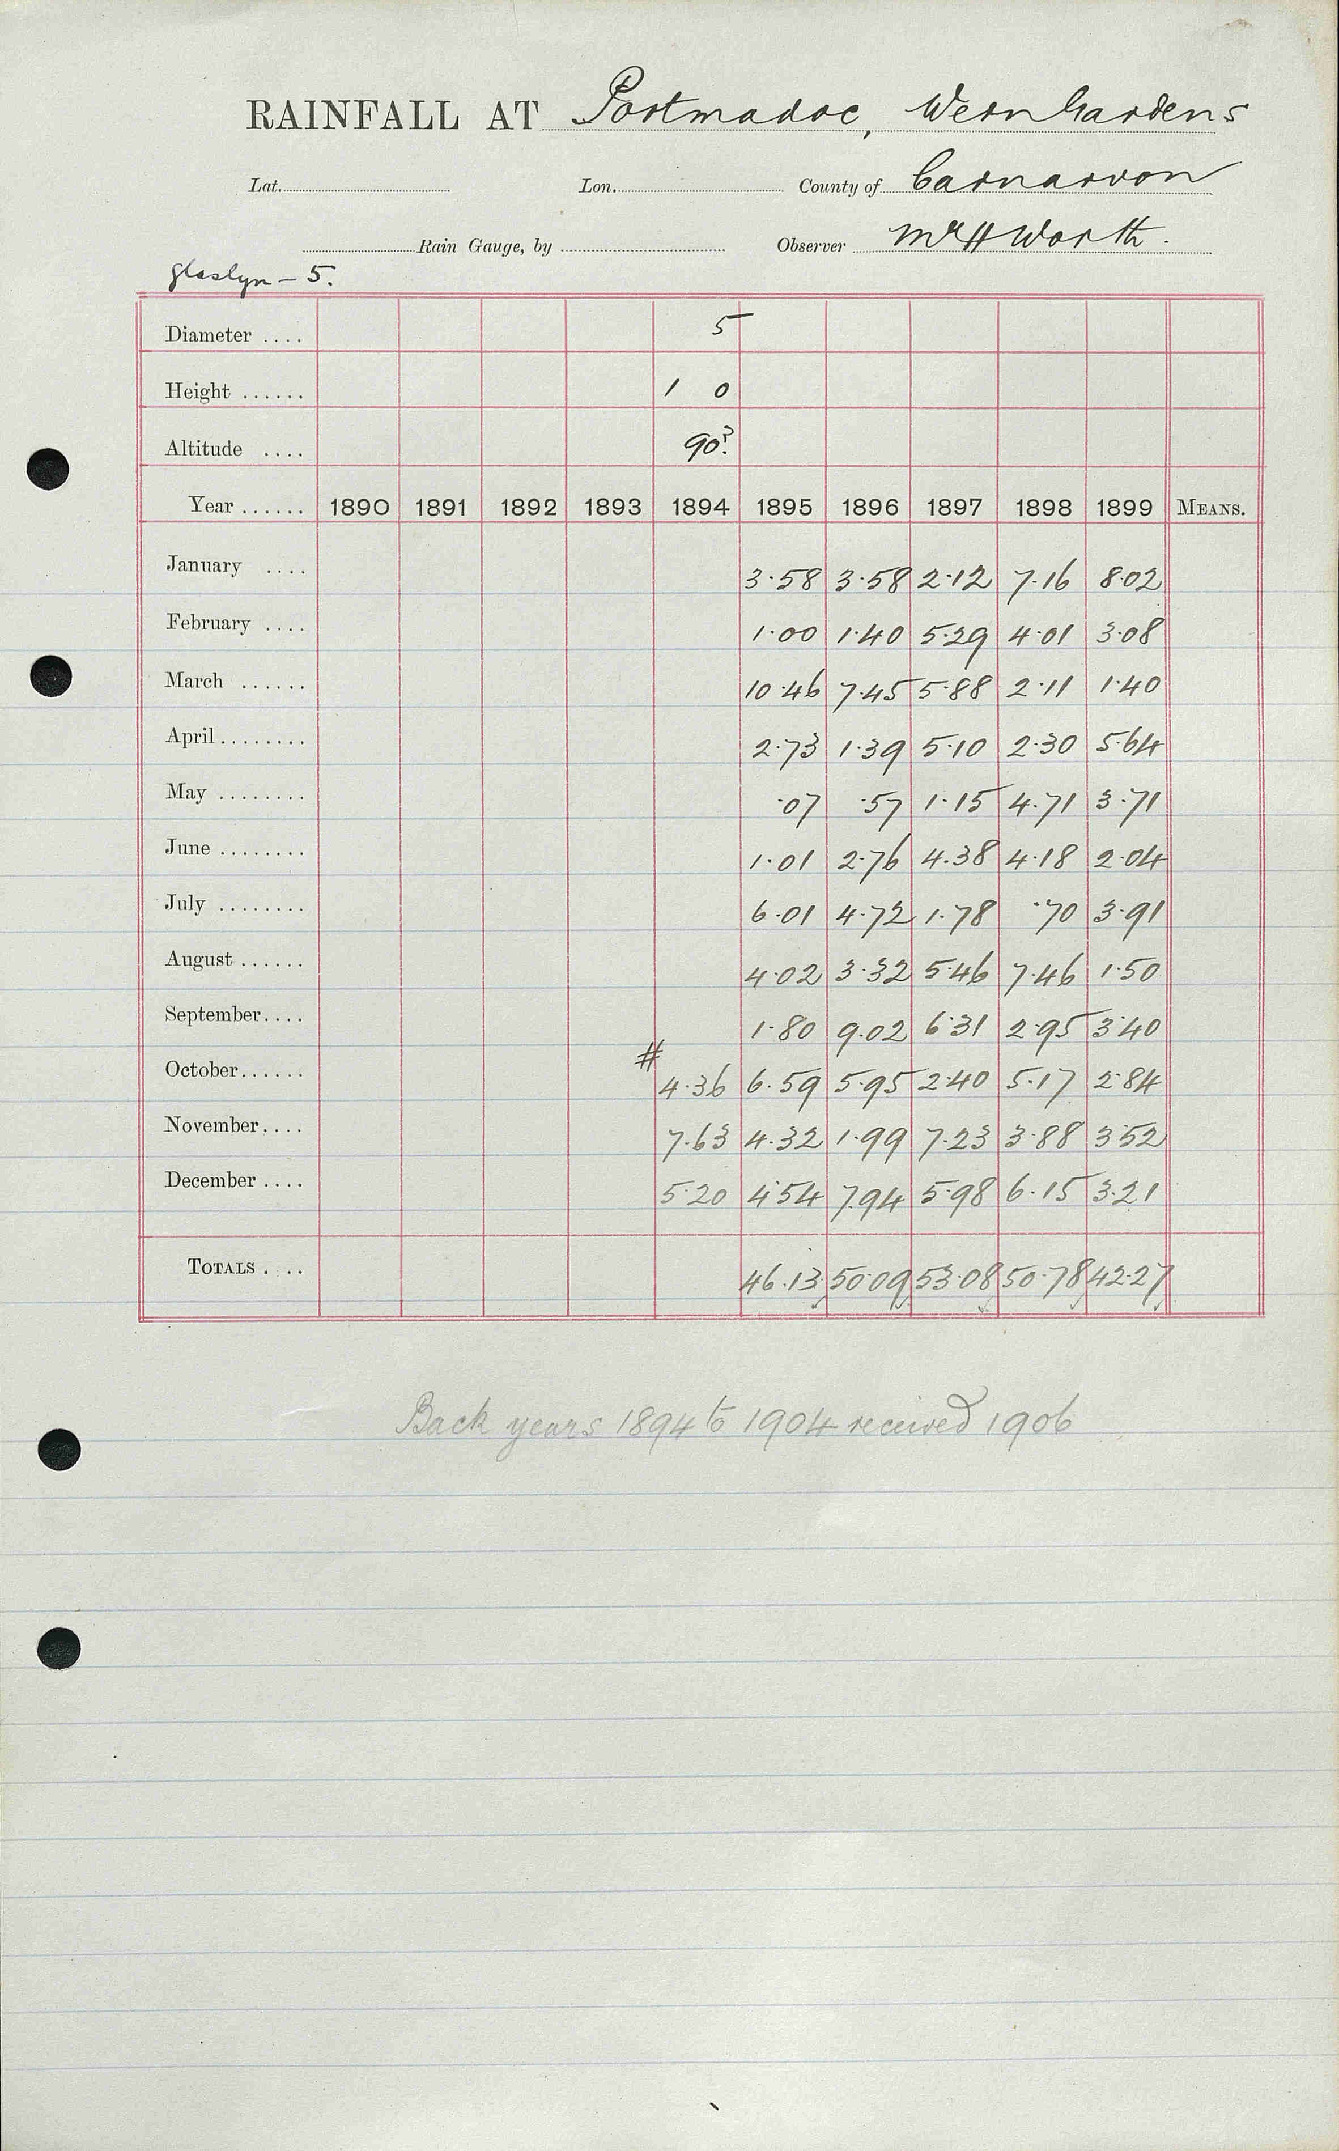 RAINFALL AT Portmadoc, Wern Gardens
Lat. Lon. County of Carnarvon
Rain Gauge, by Observer Mr H Worth.
Glaslyn - 5.
Diameter .... 5
Height ...... 1 0
Altitude .... 90?
Year ...... 1890 1891 1892 1893 1894 1895 1896 1897 1898 1899 MEANS.
January .... 3.58 3.58 2.12 7.16 8.02
February .... 1.00 1.40 5.29 4.01 3.08
March ...... 10.46 7.45 5.88 2.11 1.40
April ........ 2.73 1.39 5.10 2.30 5.64
May ........ .07 .57 1.15 4.71 3.71
June ........ 1.01 2.76 4.38 4.18 2.04
July ........ 6.01 4.72 1.78 .70 3.91
August ...... 4.02 3.32 5.46 7.46 1.50
September .... 1.80 9.02 6.31 2.95 3.40
October ...... # 4.36 6.59 5.95 2.40 5.17 2.84
November .... 7.63 4.32 1.99 7.23 3.88 3.52
December .... 5.20 4.54 7.94 5.98 6.15 3.21
TOTALS .... 46.13 50.09 53.08 50.78 42.27
Back years 1894 to 1904 received 1906